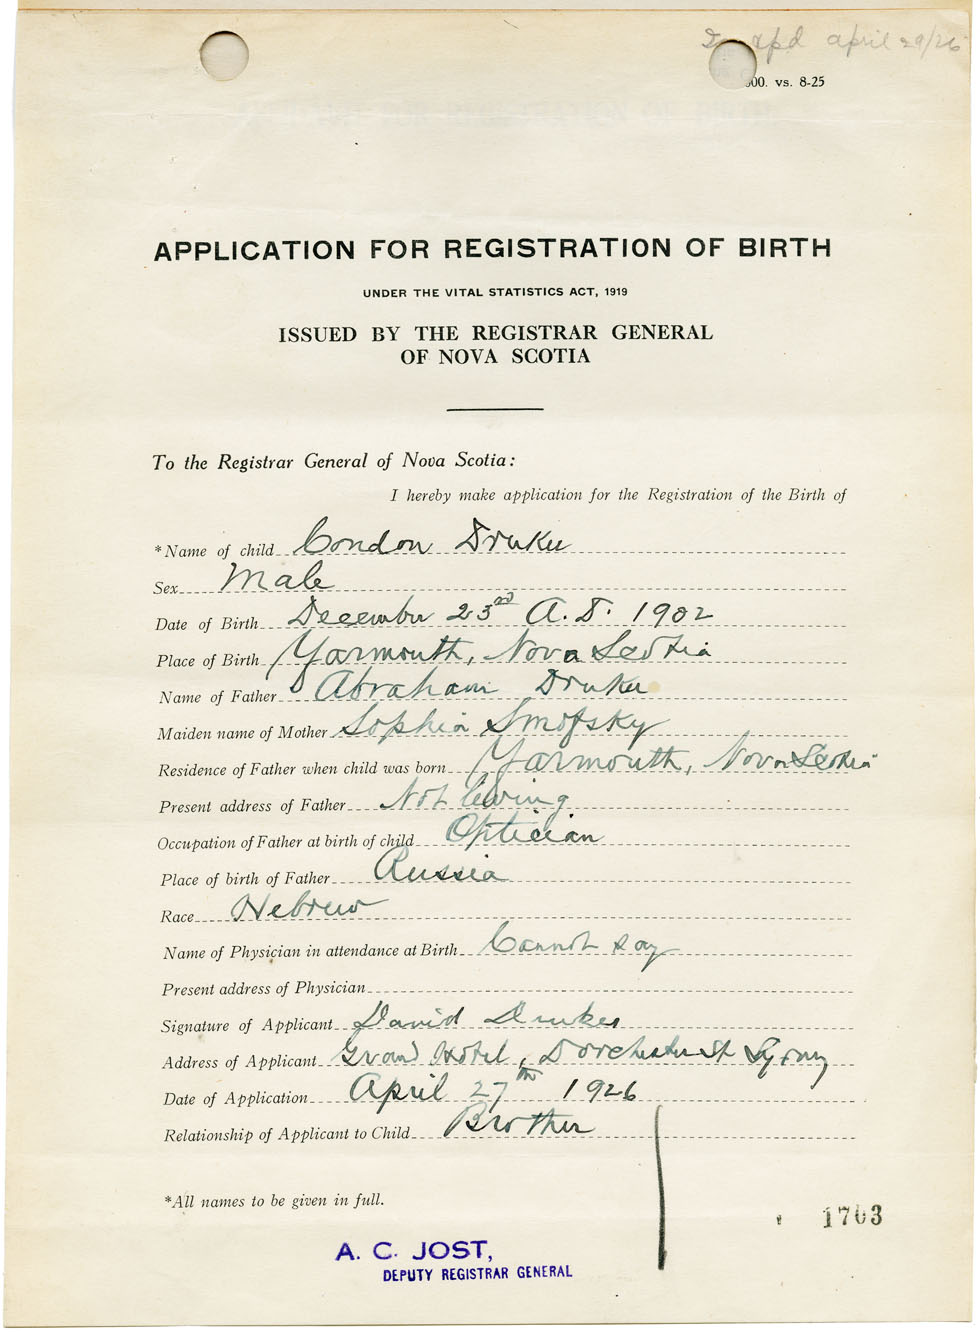 apd april 29/26
500. vs. 8-25
APPLICATION FOR REGISTRATION OF BIRTH
UNDER THE VITAL STATISTICS ACT, 1919
ISSUED BY THE REGISTRAR GENERAL
OF NOVA SCOTIA
To the Registrar General of Nova Scotia:
I hereby make application for the Registration of the Birth of
*Name of child Condon Druker
Sex Male
Date of Birth December 23rd A.D. 1902
Place of Birth Yarmouth, Nova Scotia
Name of Father Abraham Druker
Maiden name of Mother Sophia Smofsky
Residence of Father when child was born Yarmouth, Nova Scotia
Present address of Father Not living
Occupation of Father at birth of child Optician
Place of birth of Father Russia
Race Hebrew
Name of Physician in attendance at Birth Cannot say
Present address of Physician
Signature of Applicant David Druker
Address of Applicant Grand Hotel, Dorchester St Sydney
Date of Application April 27th 1926
Relationship of Applicant to Child Brother
*All names to be given in full.
1703
A. C. JOST,
DEPUTY REGISTRAR GENERAL